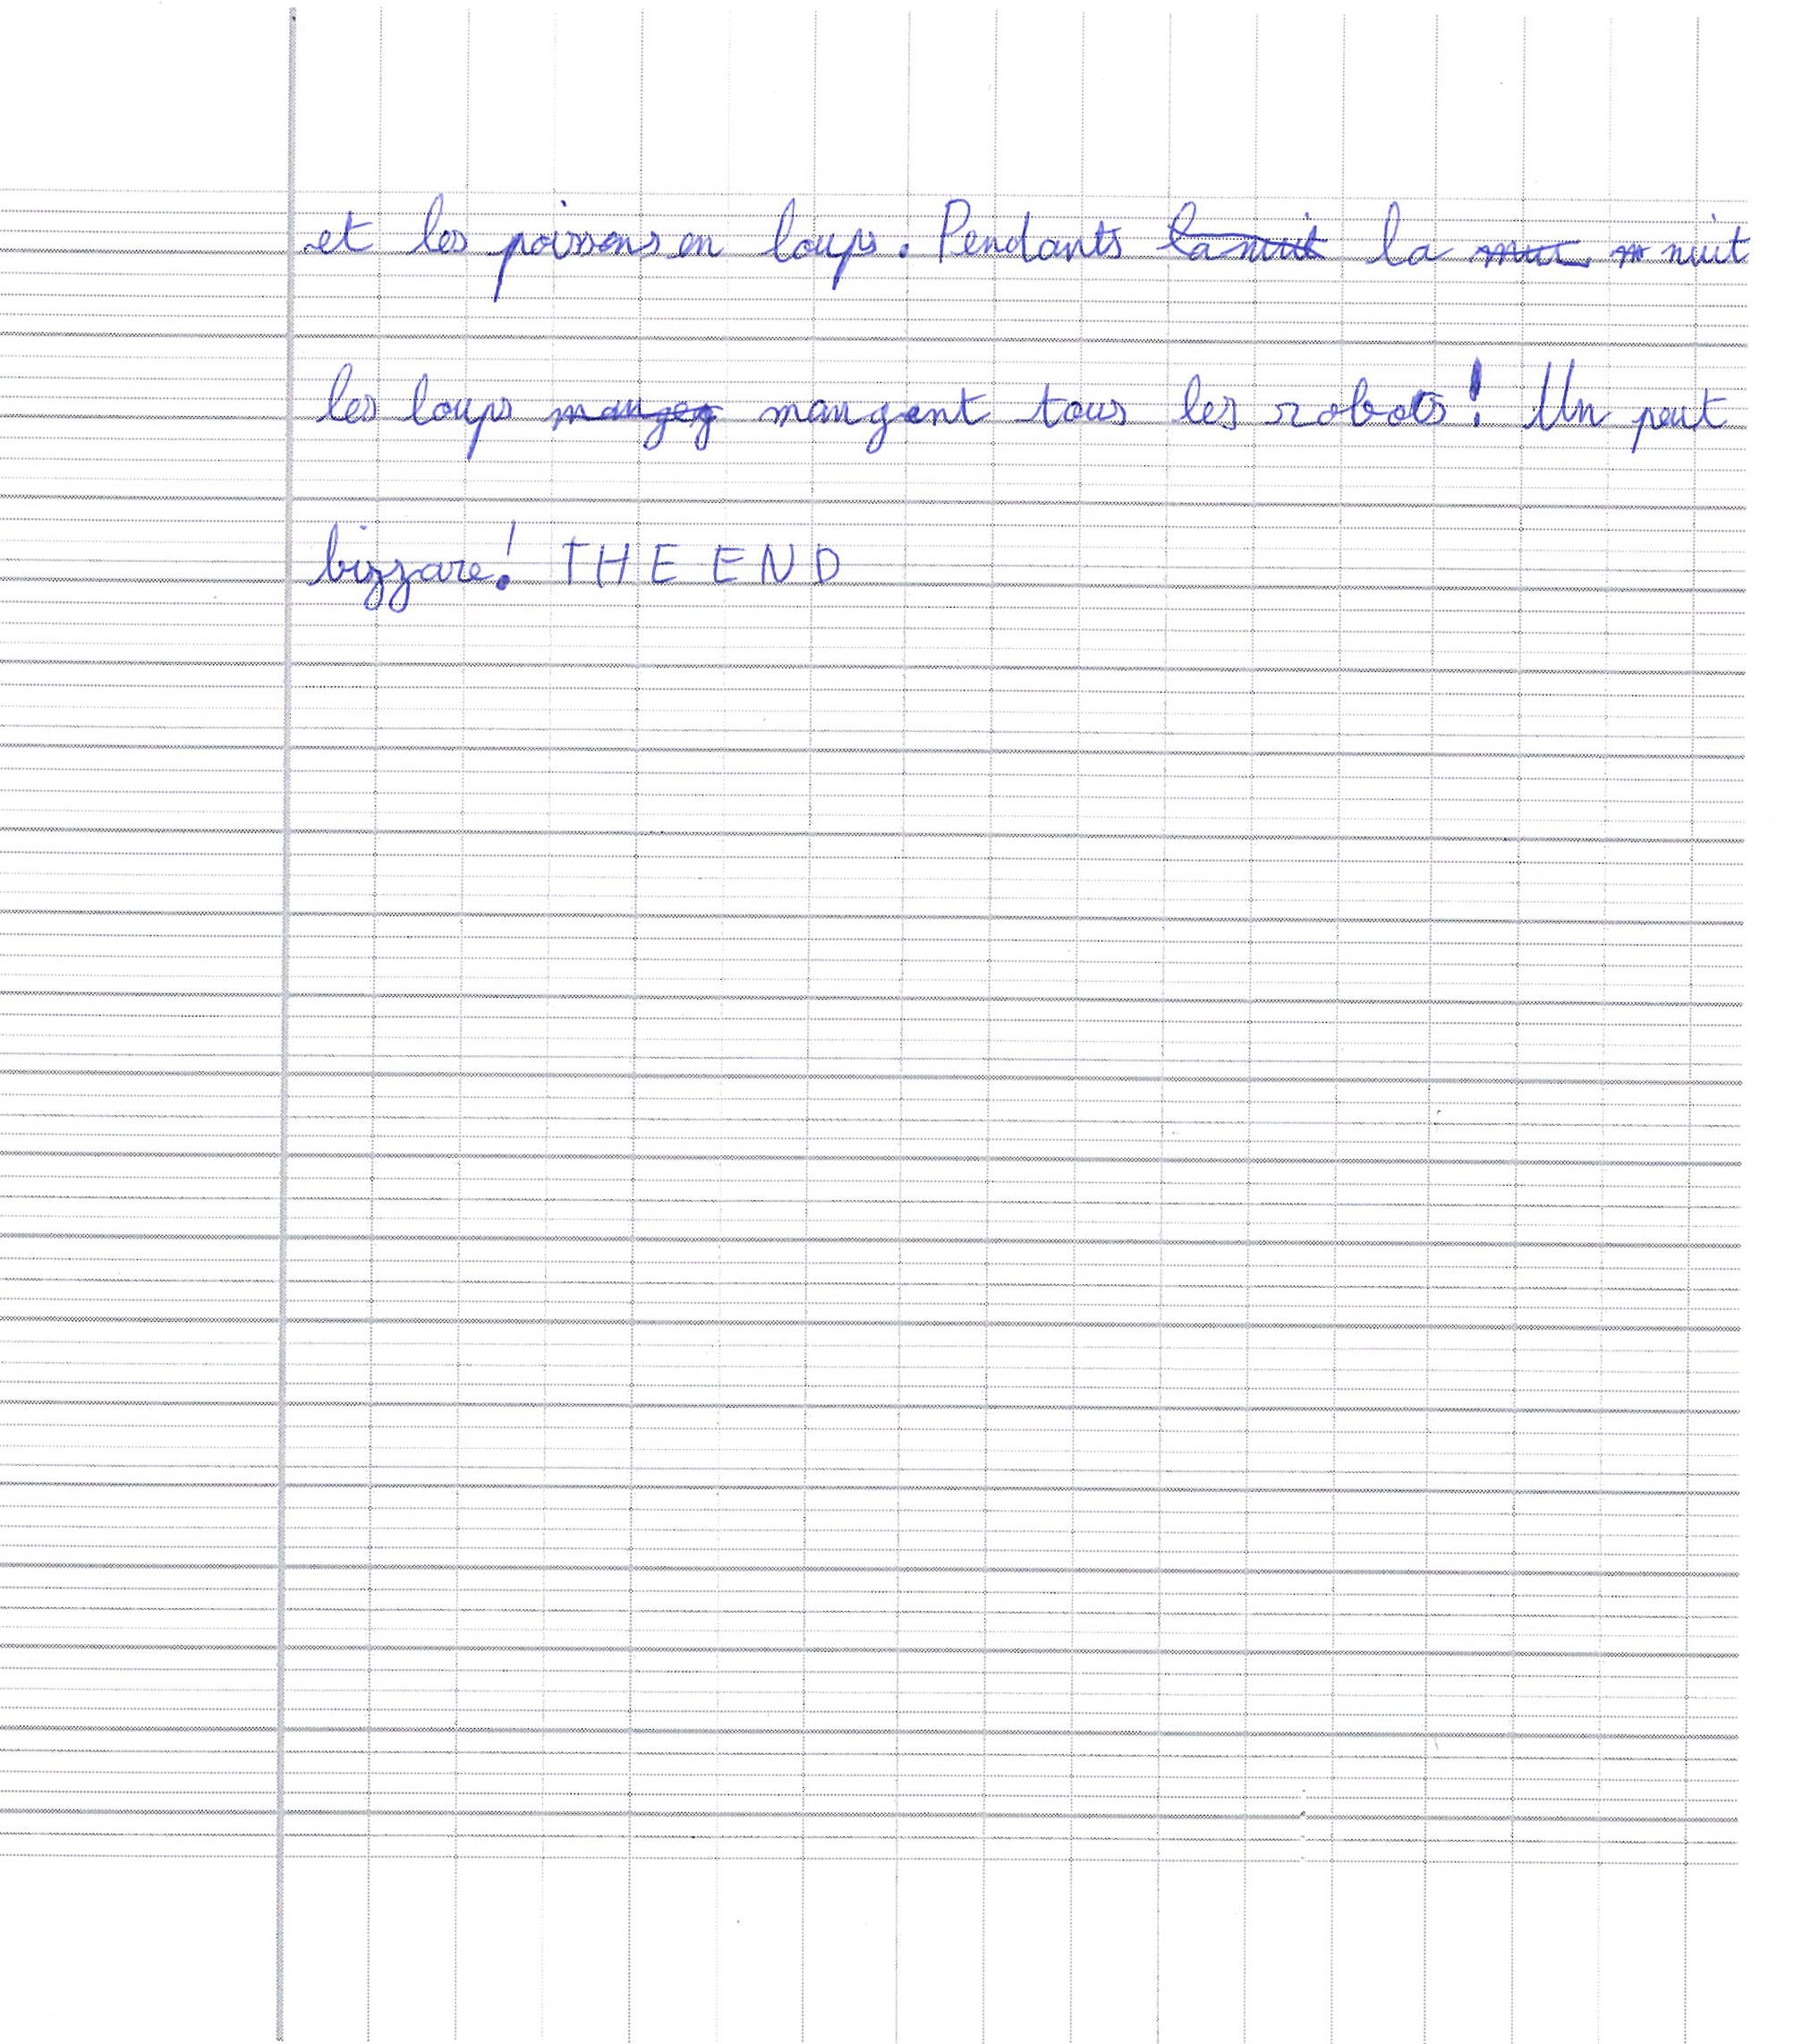 et les poissons en loups. Pendants la nuit la nuit
les loups mangent tous les robots! Un peut
bizzare! THE END